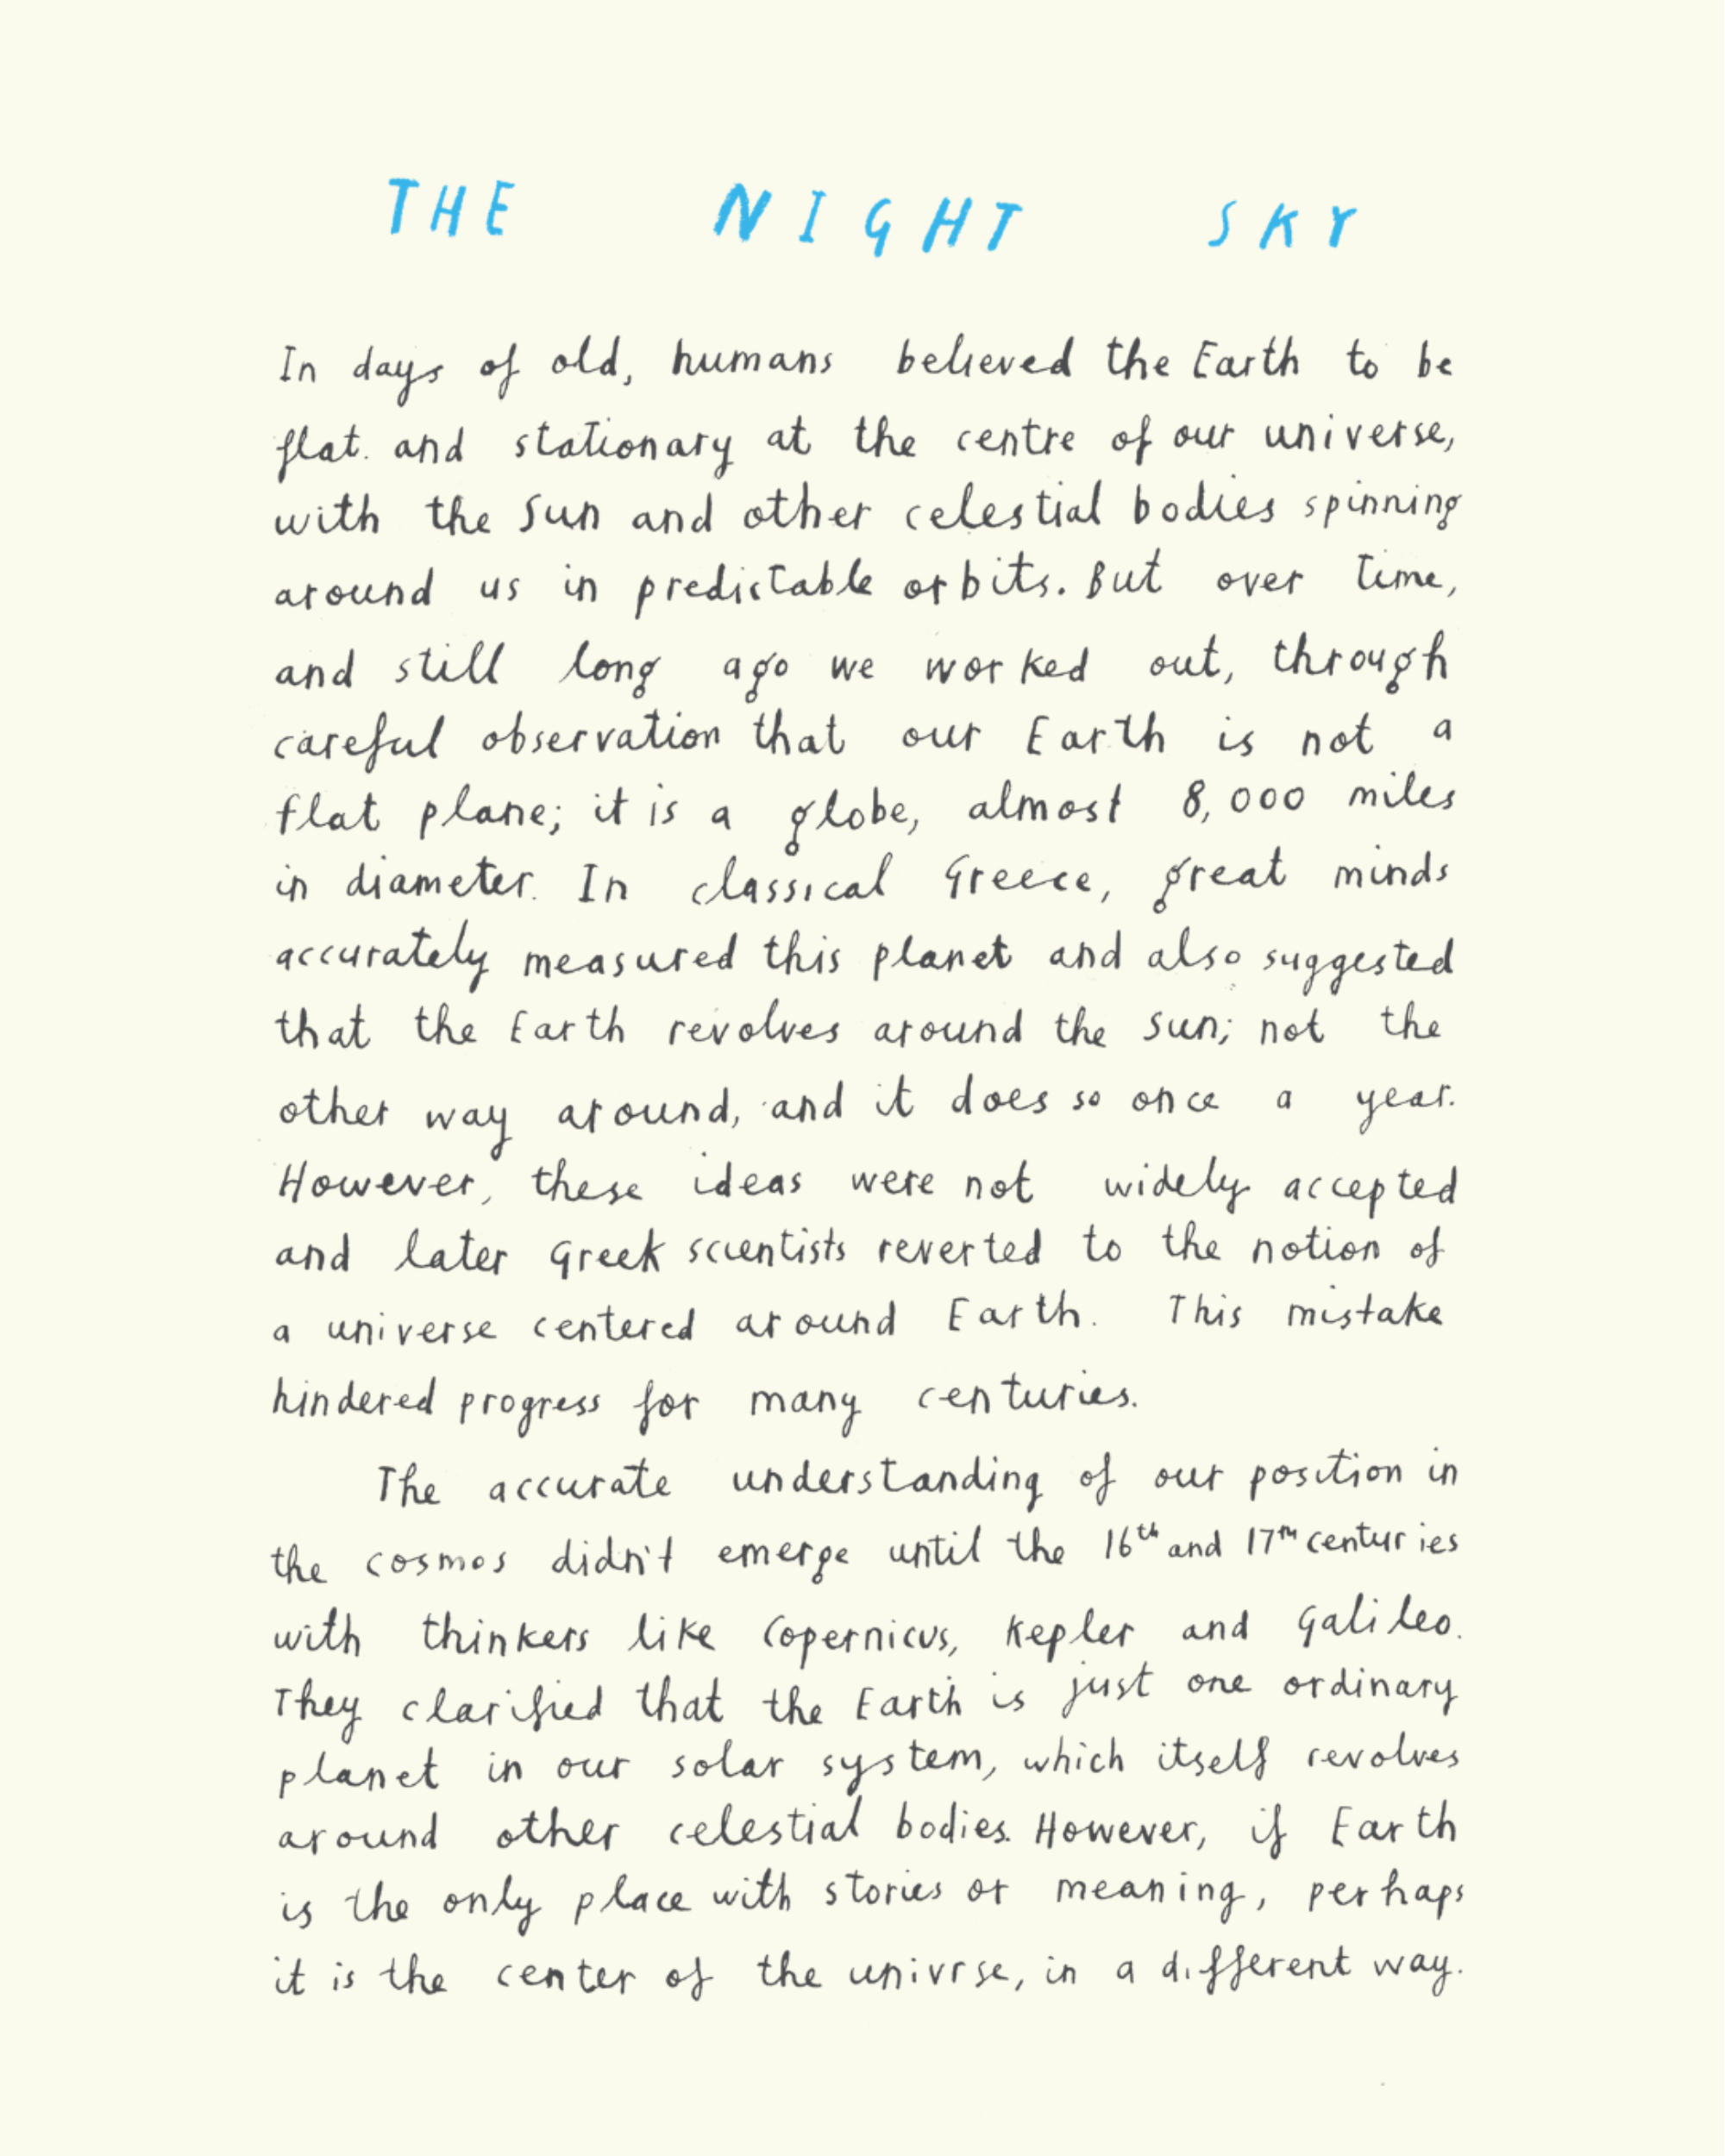 THE NIGHT SKY
In days of old, humans believed the Earth to be
flat. and stationary at the centre of our universe,
with the Sun and other celestial bodies spinning
around us in predictable orbits. But over time,
and still long ago we worked out, through
careful observation that our Earth is not a
flat plane; it is a globe, almost 8,000 miles
in diameter. In classical Greece, great minds
accurately measured this planet and also suggested
that the Earth revolves around the sun; not the
other way around, and it does so once a year.
However, these ideas were not widely accepted
and later Greek scientists reverted to the notion of
a universe centered around Earth. This mistake
hindered progress for many centuries.
The accurate understanding of our position in
the cosmos didn't emerge until the 16th and 17th centuries
with thinkers like Copernicus, Kepler and Galileo.
They clarified that the Earth is just one ordinary
planet in our solar system, which itself revolves
around other celestial bodies. However, if Earth
is the only place with stories or meaning, perhaps
it is the center of the univrse, in a different way.